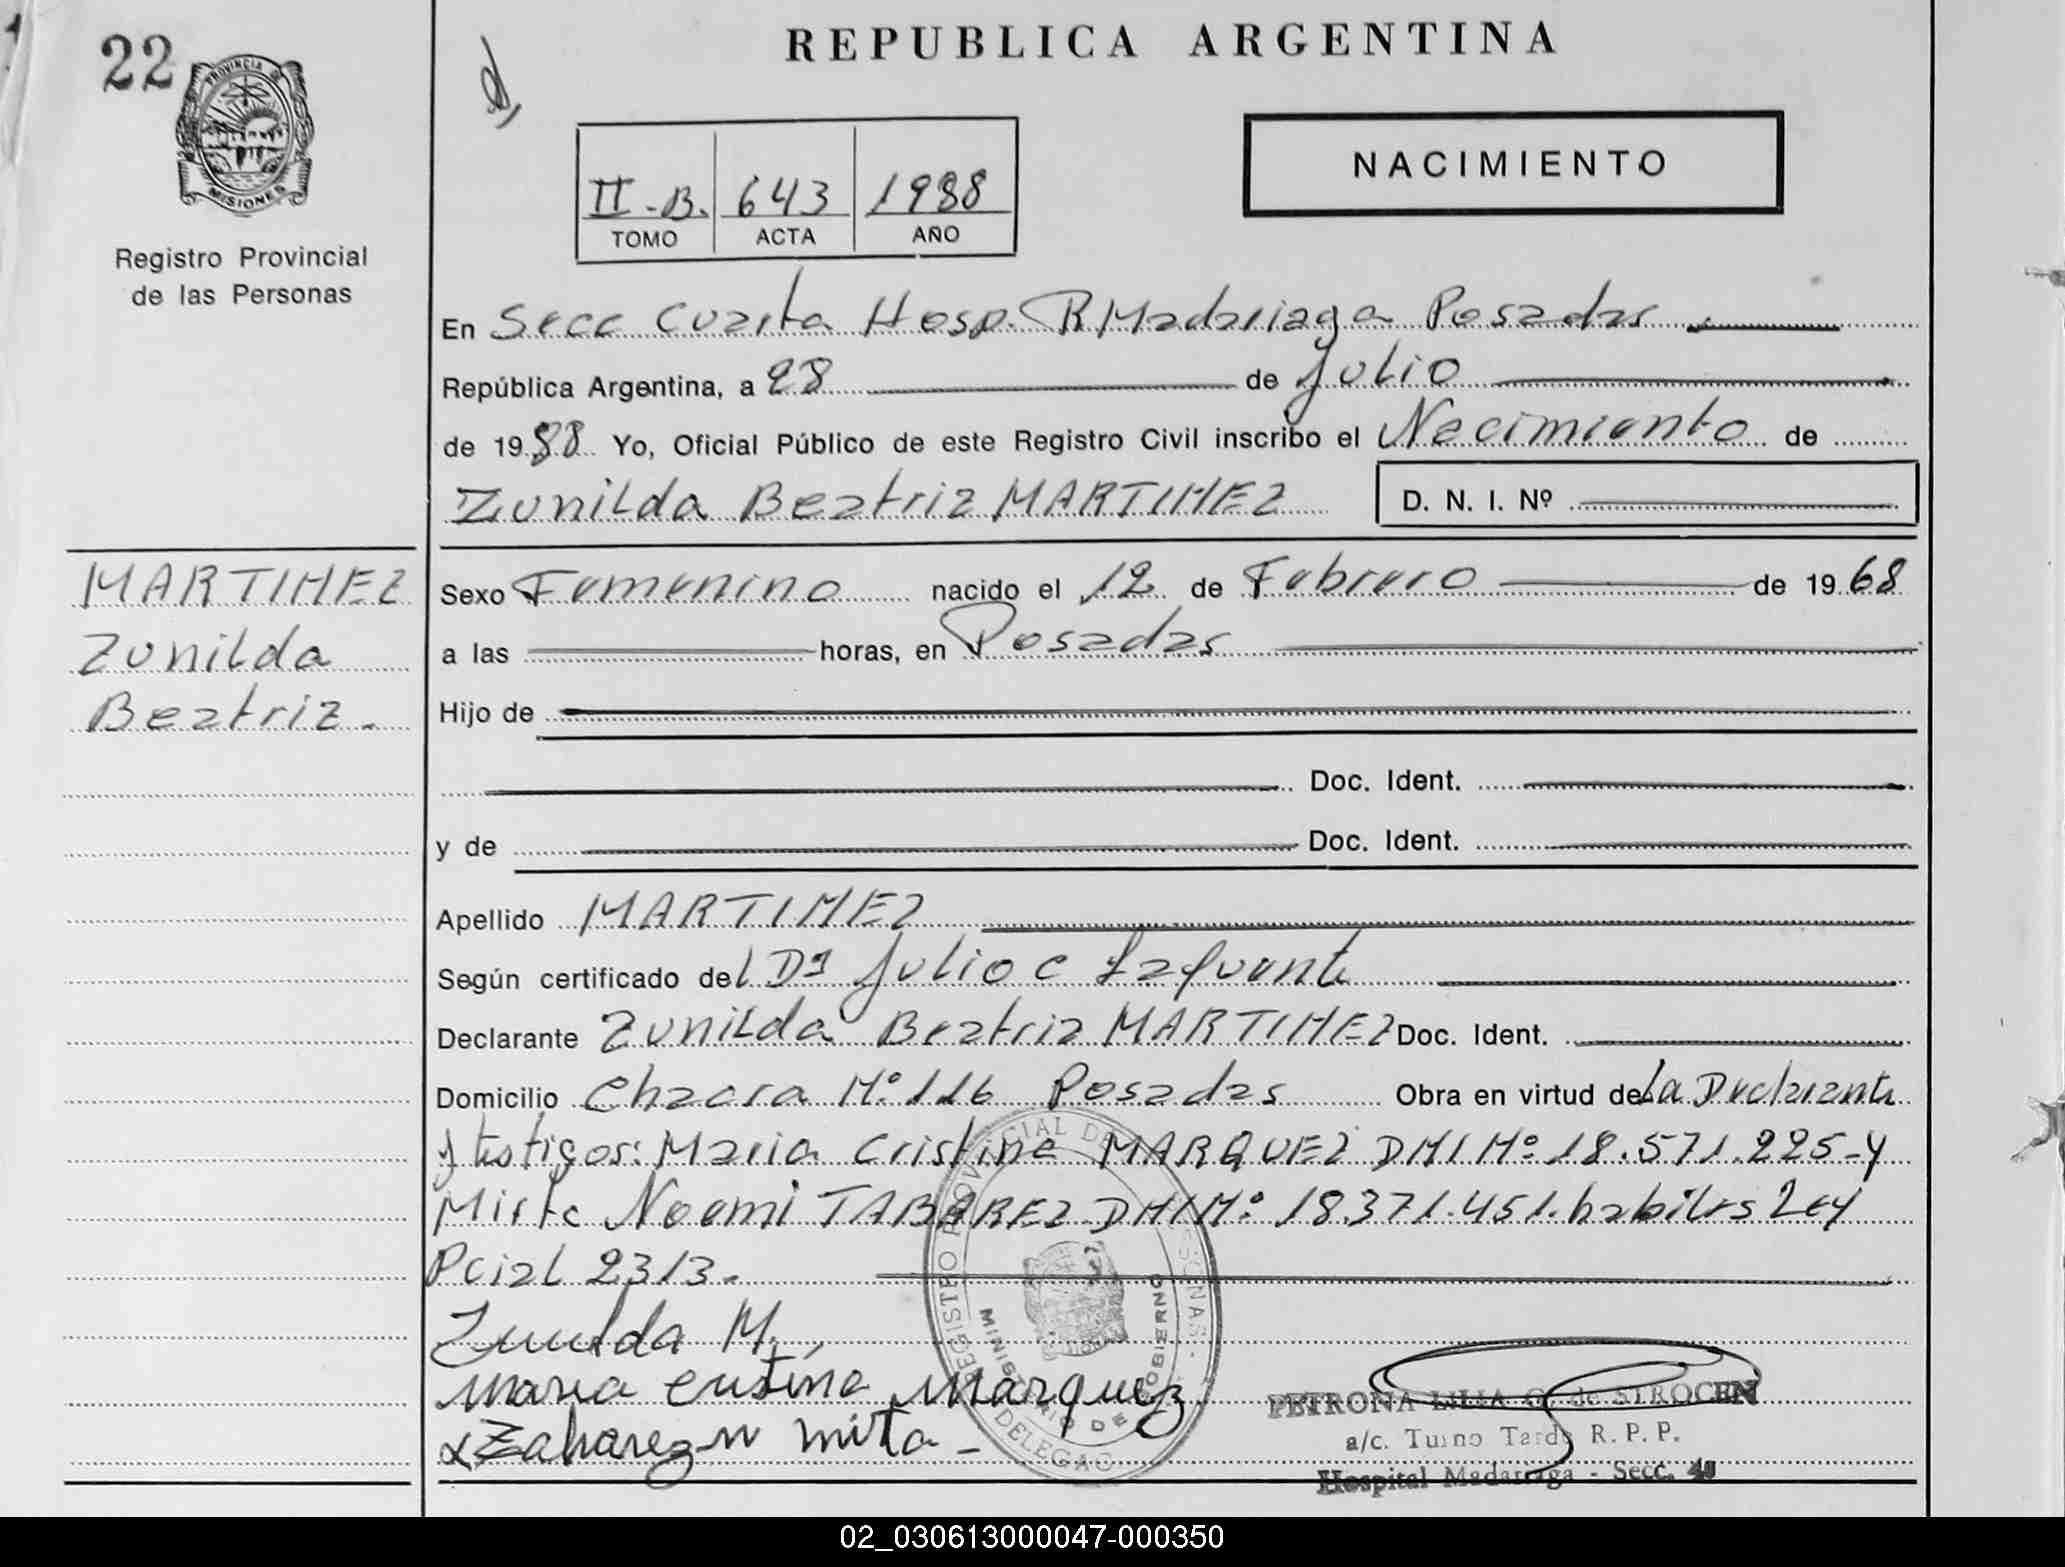 22
PROVINCIA DE
MISIONES
Registro Provincial
de las Personas
REPUBLICA ARGENTINA
NACIMIENTO
II-B. 643 1988
TOMO ACTA AÑO
En Secc Cuarta Hosp. R Madariaga Posadas
República Argentina, a 28 de Julio
de 1988 Yo, Oficial Público de este Registro Civil inscribo el Nacimiento de
Zunilda Beatriz MARTINEZ D. N. I. Nº
MARTINEZ
Zunilda
Beatriz.
Sexo Femenino nacido el 12 de Febrero de 1968
a las horas, en Posadas
Hijo de
Doc. Ident.
y de Doc. Ident.
Apellido MARTINEZ
Según certificado del Dr Julio C Lafuente
Declarante Zunilda Beatriz MARTINEZ Doc. Ident.
Domicilio Chacra Nº 116 Posadas Obra en virtud de La Declarante
y testigos: Maria Cristina MARQUEZ DNI Nº 18.571.225-y
Mirta Noemi TABAREZ DNI Nº 18.371.451. habiles Ley
Pcial 2313.
Zunilda M.
Maria Cristina Marquez
Mirta
REGISTRO PROVINCIAL DE
MINISTERIO DE GOBIERNO
PETRONA LILIA G. de STROCEN
a/c. Turno Tarde R. P. P.
Hospital Madariaga - Secc. 4a
02_030613000047-000350